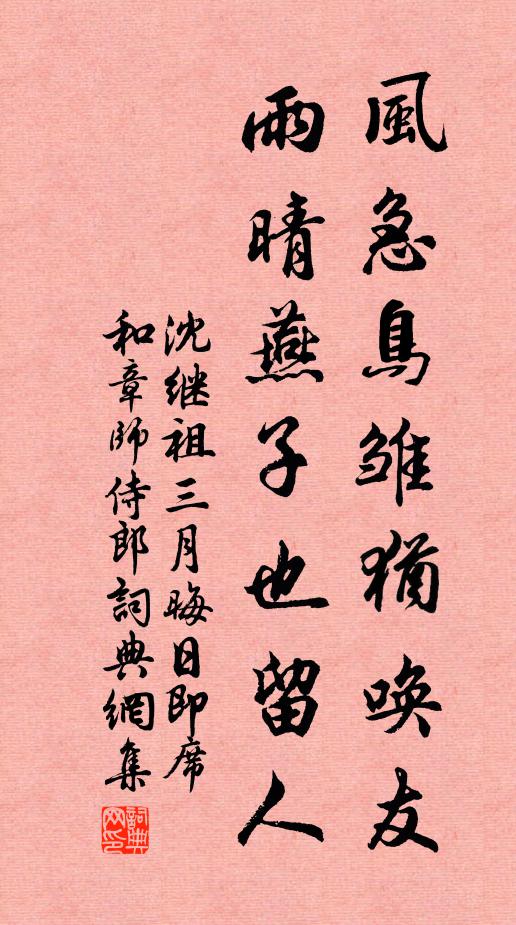 風急鳥雏猶喚友
雨晴燕子也留人
沈继祖三月晦日即席
和章師侍郎詞典網集
詞典
网印